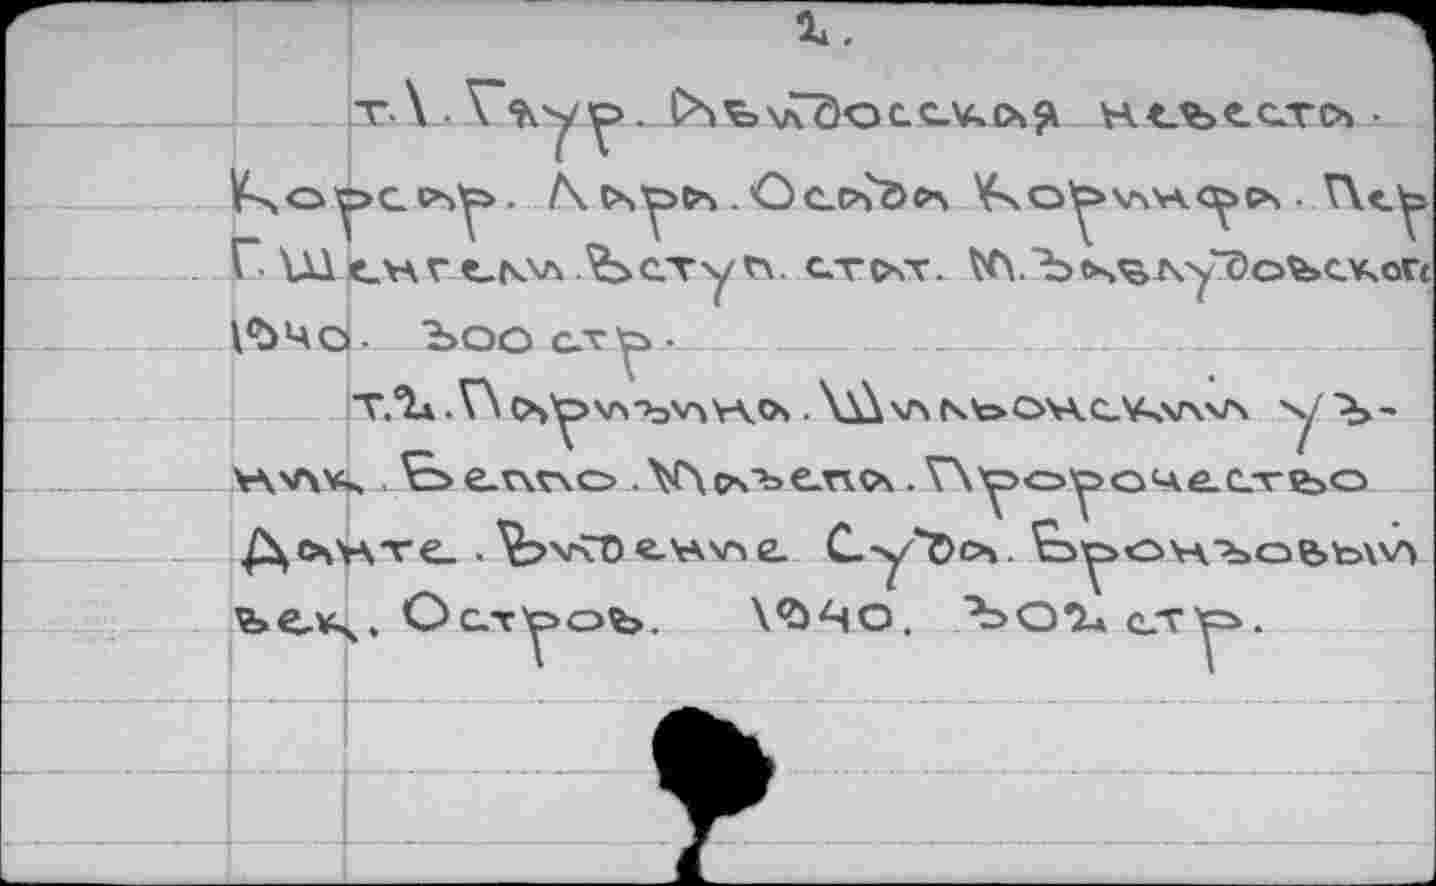 2.
т.1. Гяур. Абидосская невеста.
Корсар. Лара. Осада Коринфа. Пер
Г. Шенгели. Вступ. стат. М. Заблудовског
1940. 300 стр.
т.2. Паризина. Шильонский уз-
ник. Беппо. Мазепа. Пророчество
Данте. Видение Суда. Бронзовый
век. Остров. 1940. 302 стр.